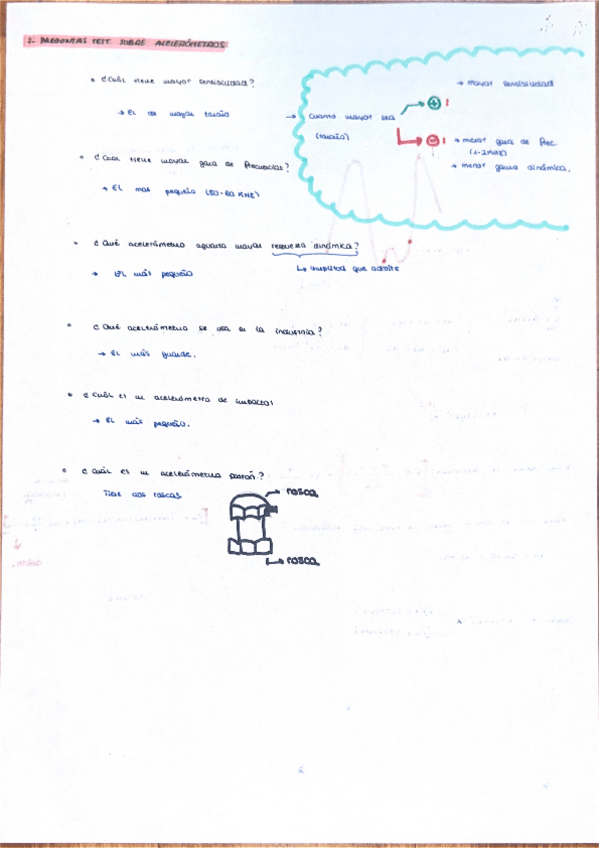 1. PREGUNTAS TEST SOBRE ACELERÓMETROS
• ¿Cuál tiene mayor sensibilidad?
→ El de mayor tamaño
→ Cuanto mayor sea (tamaño)
⊕ !
→ mayor sensibilidad
⊖ !
→ menor gama de frec. (1-2 KHz)
→ menor gama dinámica.
• ¿Cual tiene mayor gama de frecuencias?
→ El mas pequeño (50-60 KHz)
• ¿Qué acelerómetro aguanta mayor respuesta dinámica?
↳ amplitud que admite
→ El más pequeño
• ¿Qué acelerómetro se usa en la industria?
→ El más grande.
• ¿Cuál es un acelerómetro de impactos?
→ El más pequeño.
• ¿Cuál es un acelerómetro patrón?
Tiene dos roscas
→ rosca
↳ rosca